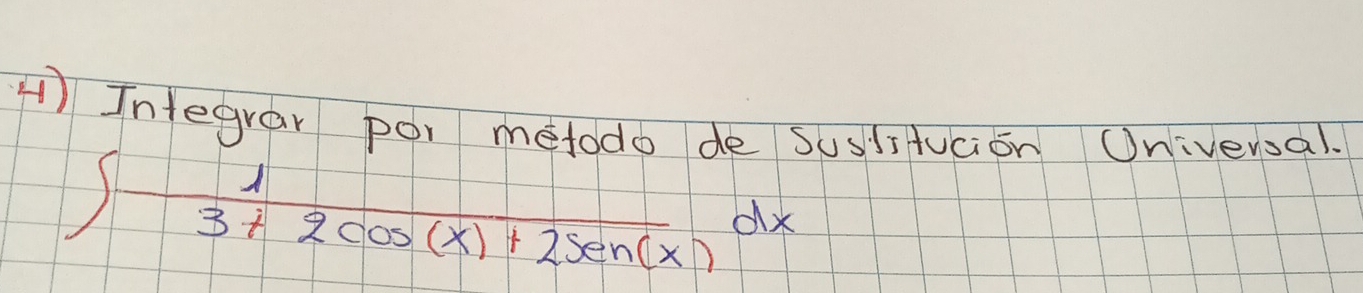 4) Integrar por método de Sustitución Universal.
∫ 1 / 3 + 2cos(x) + 2sen(x) dx